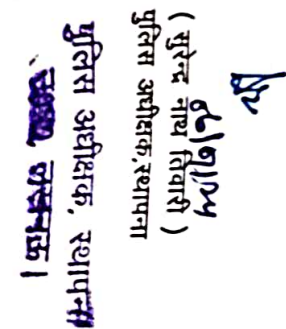 ( सुरेन्द्र नाथ तिवारी )
पुलिस अधीक्षक,स्थापना
पुलिस अधीक्षक, स्थापना
लखनऊ।